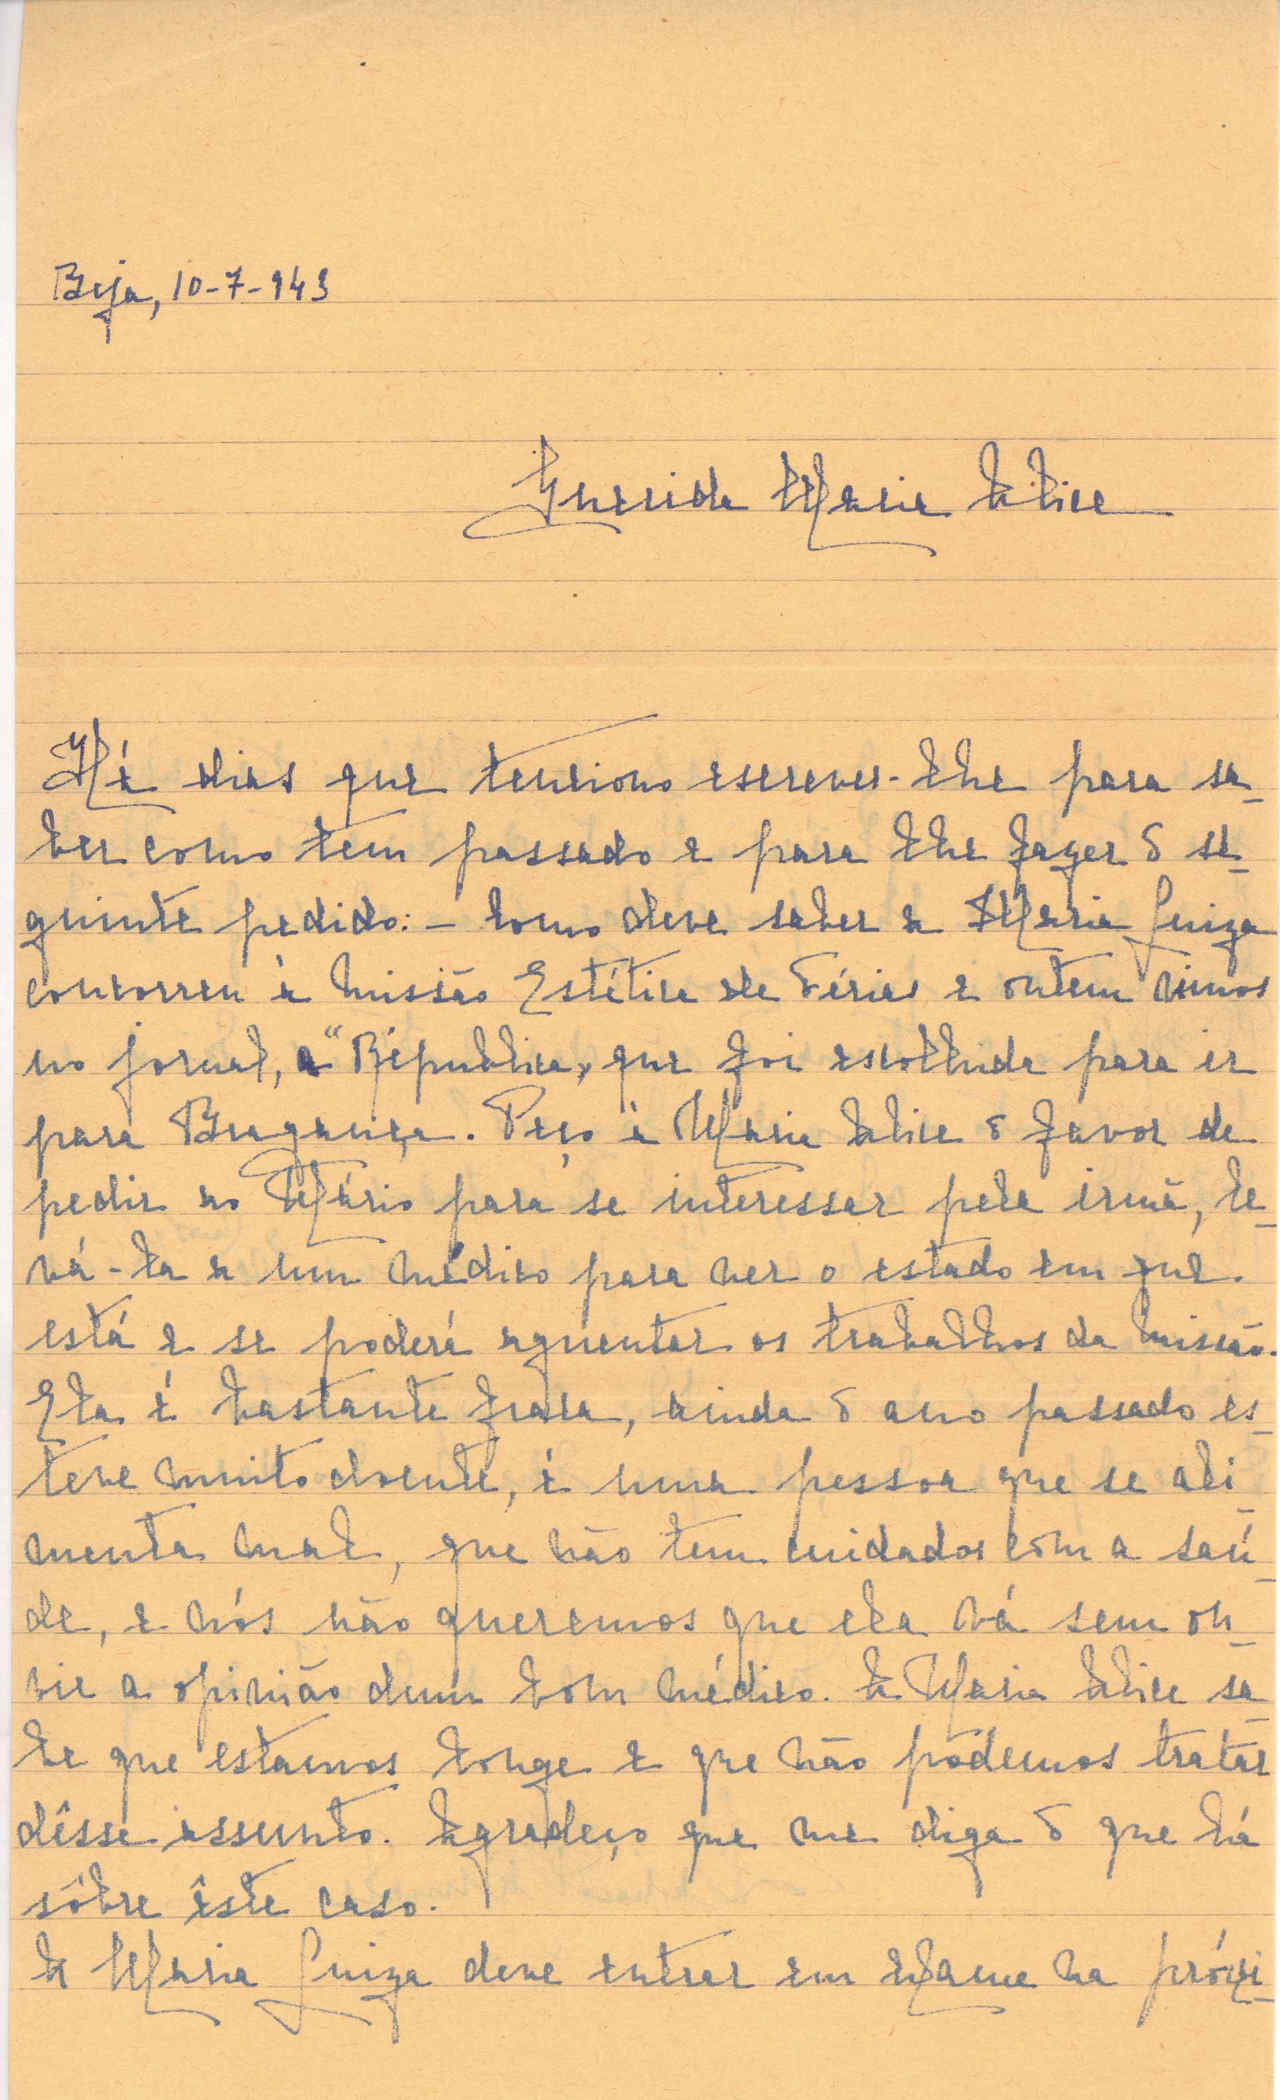 Beja, 10-7-943
Querida Maria Alice
Há dias que tenciono escrever-lhe para sa-
ber como tem passado e para lhe fazer o se-
guinte pedido: - Como deve saber a Maria Luiza
concorreu à Missão Estética de Férias e ontem vimos
no jornal, a "República", que foi escolhida para ir
para Bragança. Peço à Maria Alice o favor de
pedir ao Mário para se interessar pela irmã, le-
vá-la a um médico para ver o estado em que
está e se poderá aguentar os trabalhos da Missão.
Ela é bastante fraca, ainda o ano passado es-
teve muito doente, é uma pessoa que se ali-
menta mal, que não tem cuidados com a saú-
de, e nós não queremos que ela vá sem ou-
vir a opinião dum bom médico. A Maria Alice sa-
be que estamos longe e que não podemos tratar
dêsse assunto. Agradeço que me diga o que há
sôbre êste caso.
A Maria Luiza deve entrar em exame na próxi-